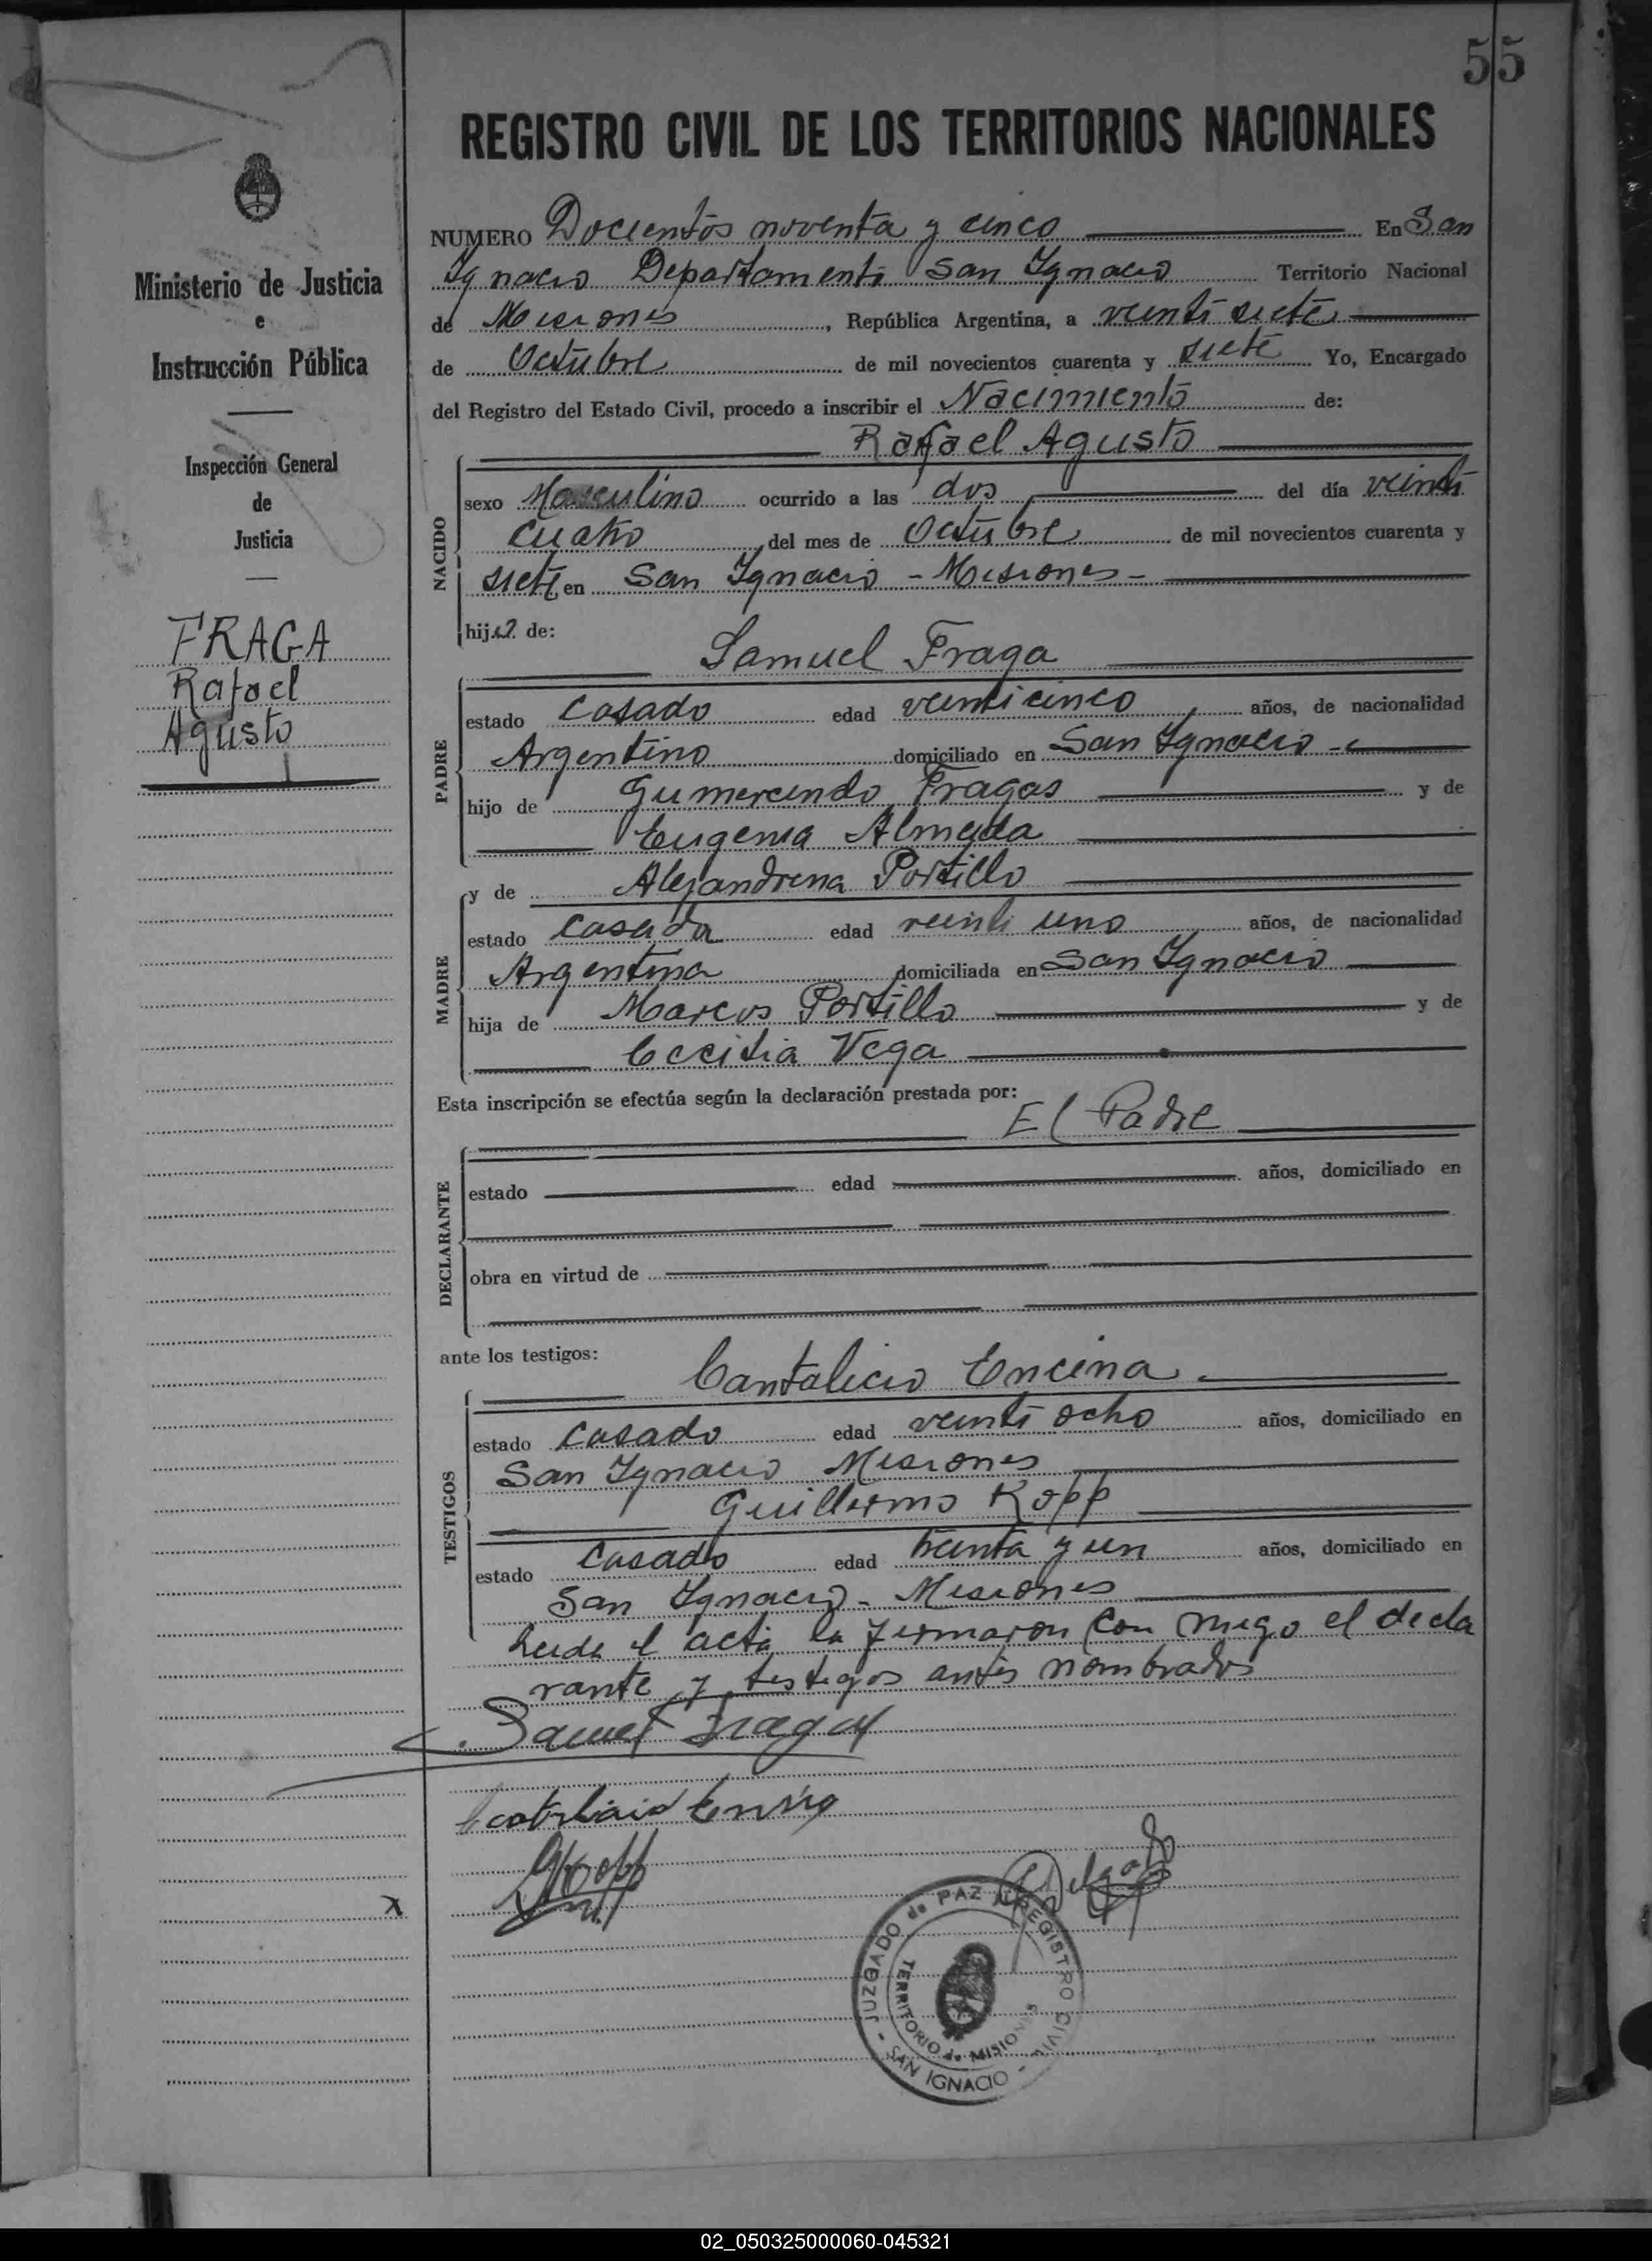 55
REGISTRO CIVIL DE LOS TERRITORIOS NACIONALES
Ministerio de Justicia
e
Instrucción Pública
Inspección General
de
Justicia
FRAGA
Rafael
Agusto
NUMERO Docientos noventa y cinco En San
Ygnacio Departamento San Ygnacio Territorio Nacional
de Misiones, República Argentina, a veinti siete
de Octubre de mil novecientos cuarenta y siete Yo, Encargado
del Registro del Estado Civil, procedo a inscribir el Nacimiento de:
Rafael Agusto
NACIDO
sexo Masculino ocurrido a las dos del día veinti
cuatro del mes de Octubre de mil novecientos cuarenta y
siete en San Ygnacio - Misiones -
hijo de:
Samuel Fraga
PADRE
estado Casado edad veinticinco años, de nacionalidad
Argentino domiciliado en San Ygnacio -
hijo de Gumercindo Fragas y de
Eugenia Almeda
y de Alejandrina Portillo
MADRE
estado Casada edad veinti uno años, de nacionalidad
Argentina domiciliada en San Ygnacio
hija de Marcos Portillo y de
Cecilia Vega
Esta inscripción se efectúa según la declaración prestada por:
El Padre
DECLARANTE
estado edad años, domiciliado en
obra en virtud de
ante los testigos:
Cantalicio Encina
TESTIGOS
estado Casado edad veinti ocho años, domiciliado en
San Ygnacio Misiones
Guillermo Kopp
estado Casado edad treinta y un años, domiciliado en
San Ygnacio - Misiones
Leida el acta la firmaron con migo el decla
rante y testigos antes nombrados
Samuel Fragas
GKopp
Delgado
x
JUZGADO de PAZ y REGISTRO CIVIL - SAN IGNACIO -
TERRITORIO de MISIONES
02_050325000060-045321